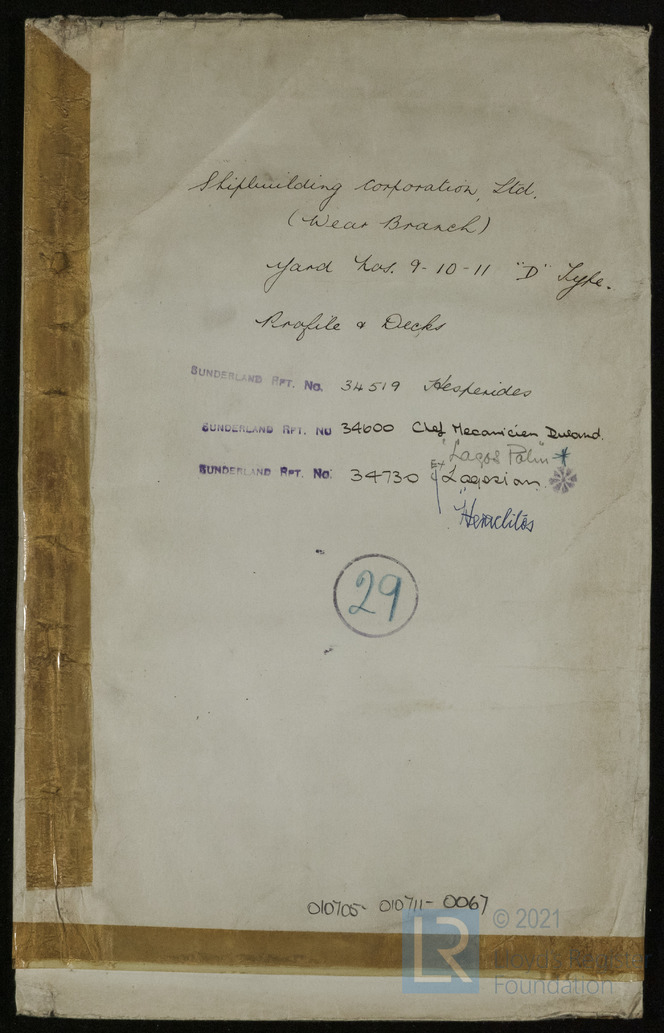 Shipbuilding Corporation, Ltd.
(Wear Branch)
Yard Nos. 9-10-11 "D" Type.
Profile & Decks
SUNDERLAND RPT. No. 34519 Hesperides
SUNDERLAND RPT. No 34600 Chef Mecanicien Durand.
"Lagos Palm"
SUNDERLAND RPT. No. 34730 Ex Lagosian.
"Heraclitos
29
010705- 010711- 0067
© 2021
LR Lloyd's Register
Foundation